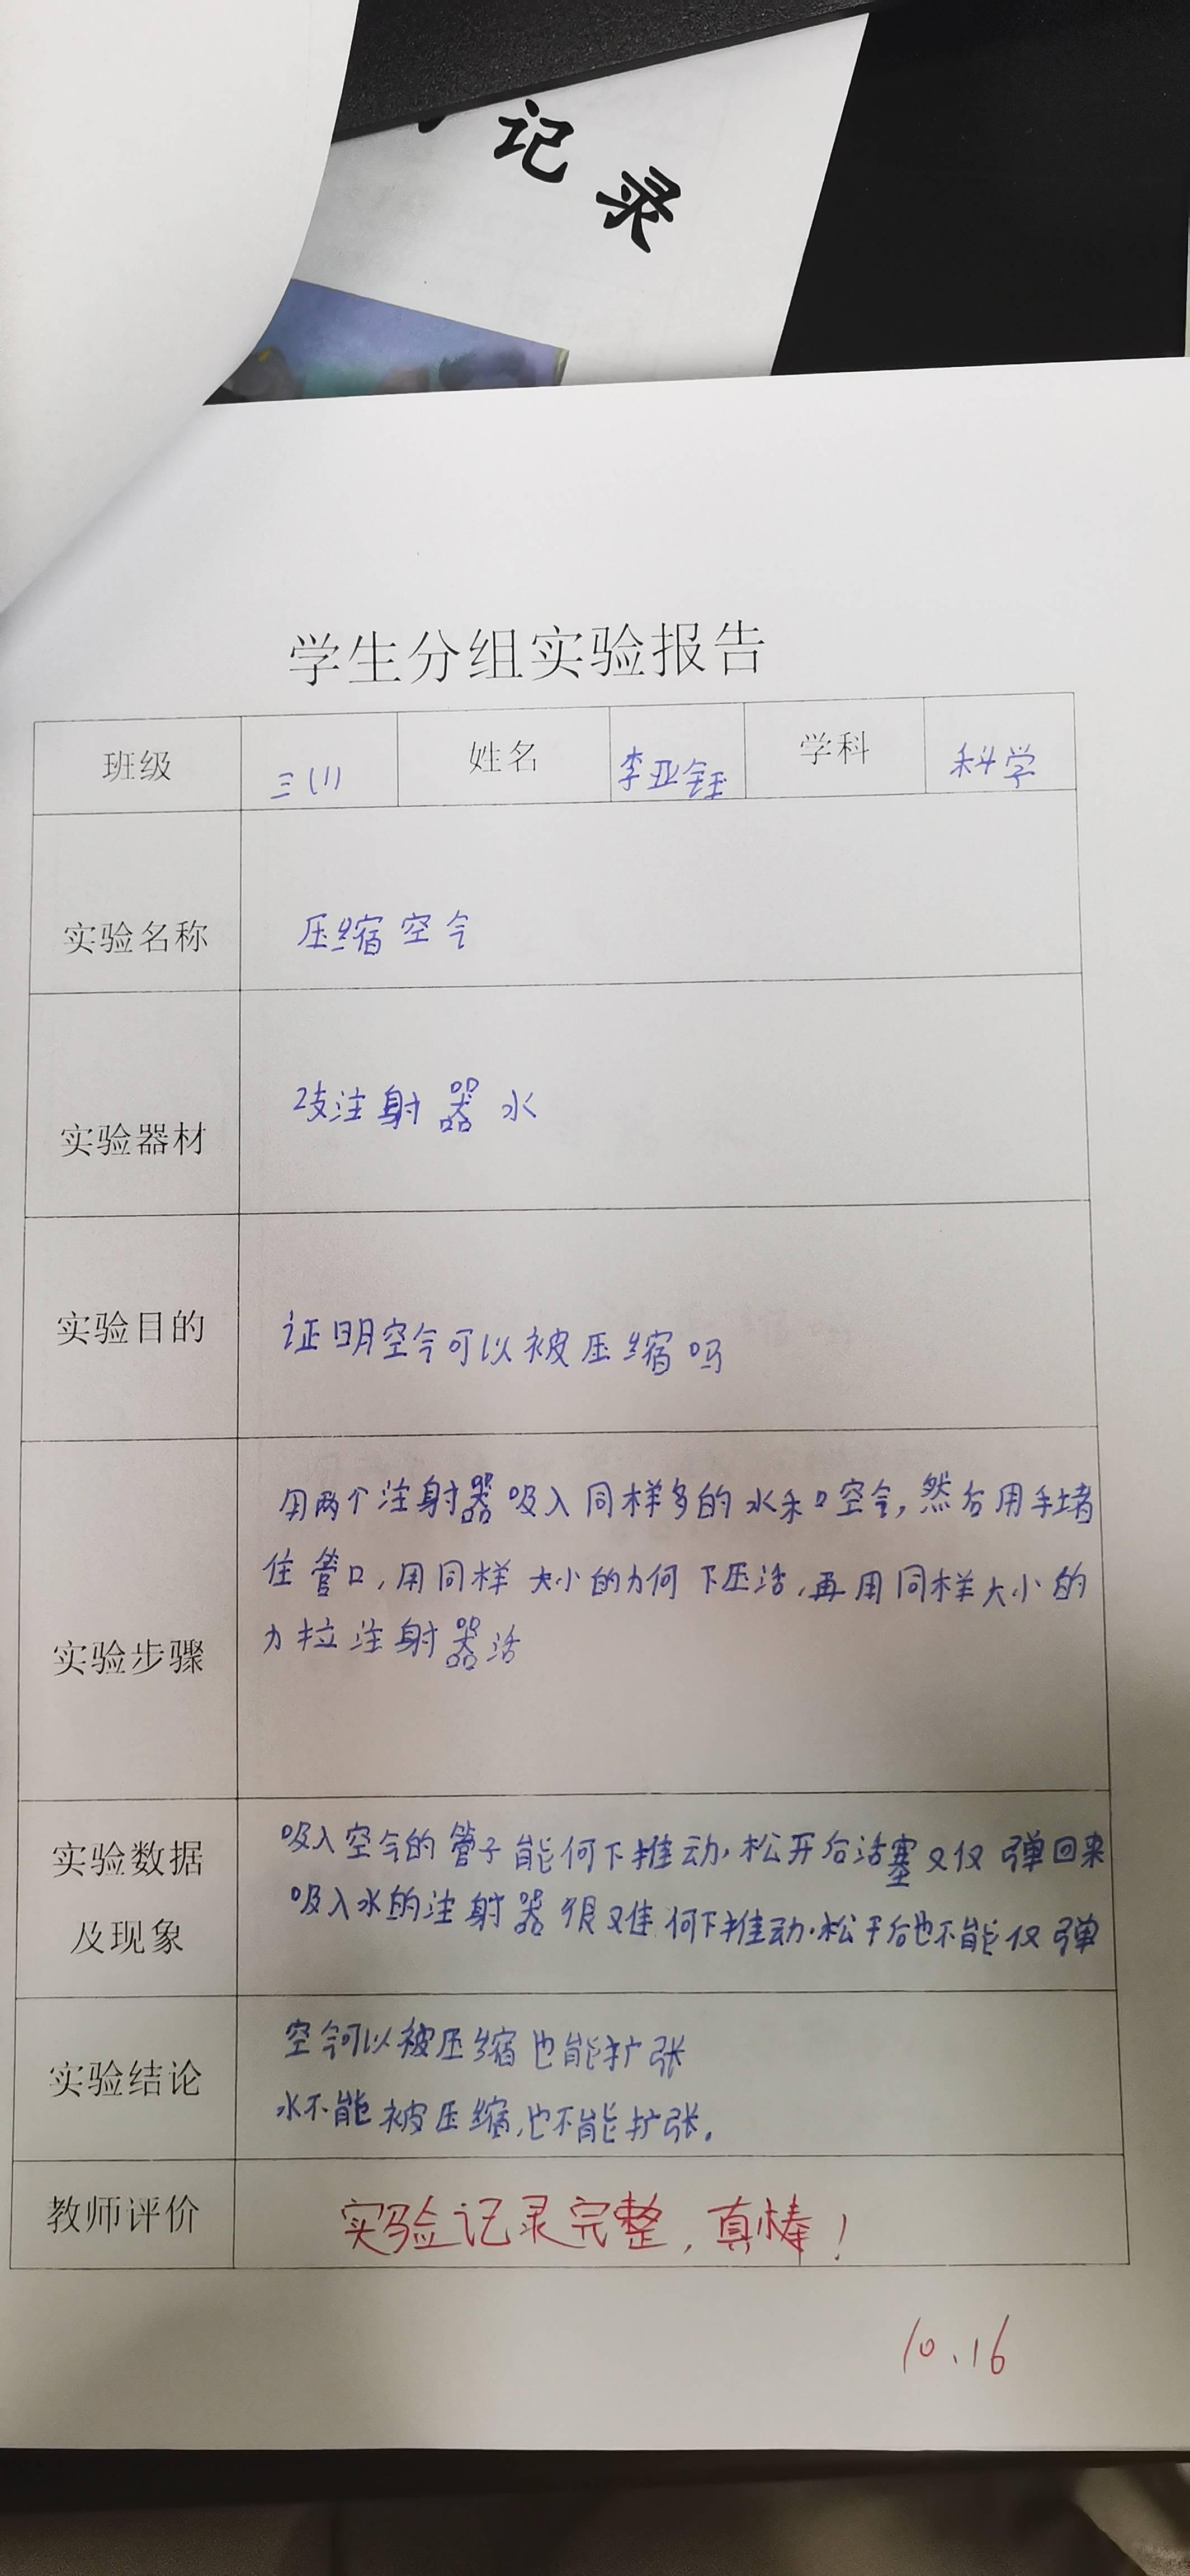 记录
学生分组实验报告
班级 三(1) 姓名 李亚钰 学科 科学
实验名称 压缩空气
实验器材 2支注射器 水
实验目的 证明空气可以被压缩吗
实验步骤 用两个注射器吸入同样多的水和空气,然后用手堵
住管口,用同样大小的力何下压活,再用同样大小的
力拉注射器活
实验数据及现象 吸入空气的管子能何下推动.松开后活塞又仅弹回来
吸入水的注射器很难何下推动.松干后也不能仅弹
实验结论 空气可以被压缩也能扩张
水不能被压缩,也不能扩张.
教师评价 实验记录完整,真棒!
10.16